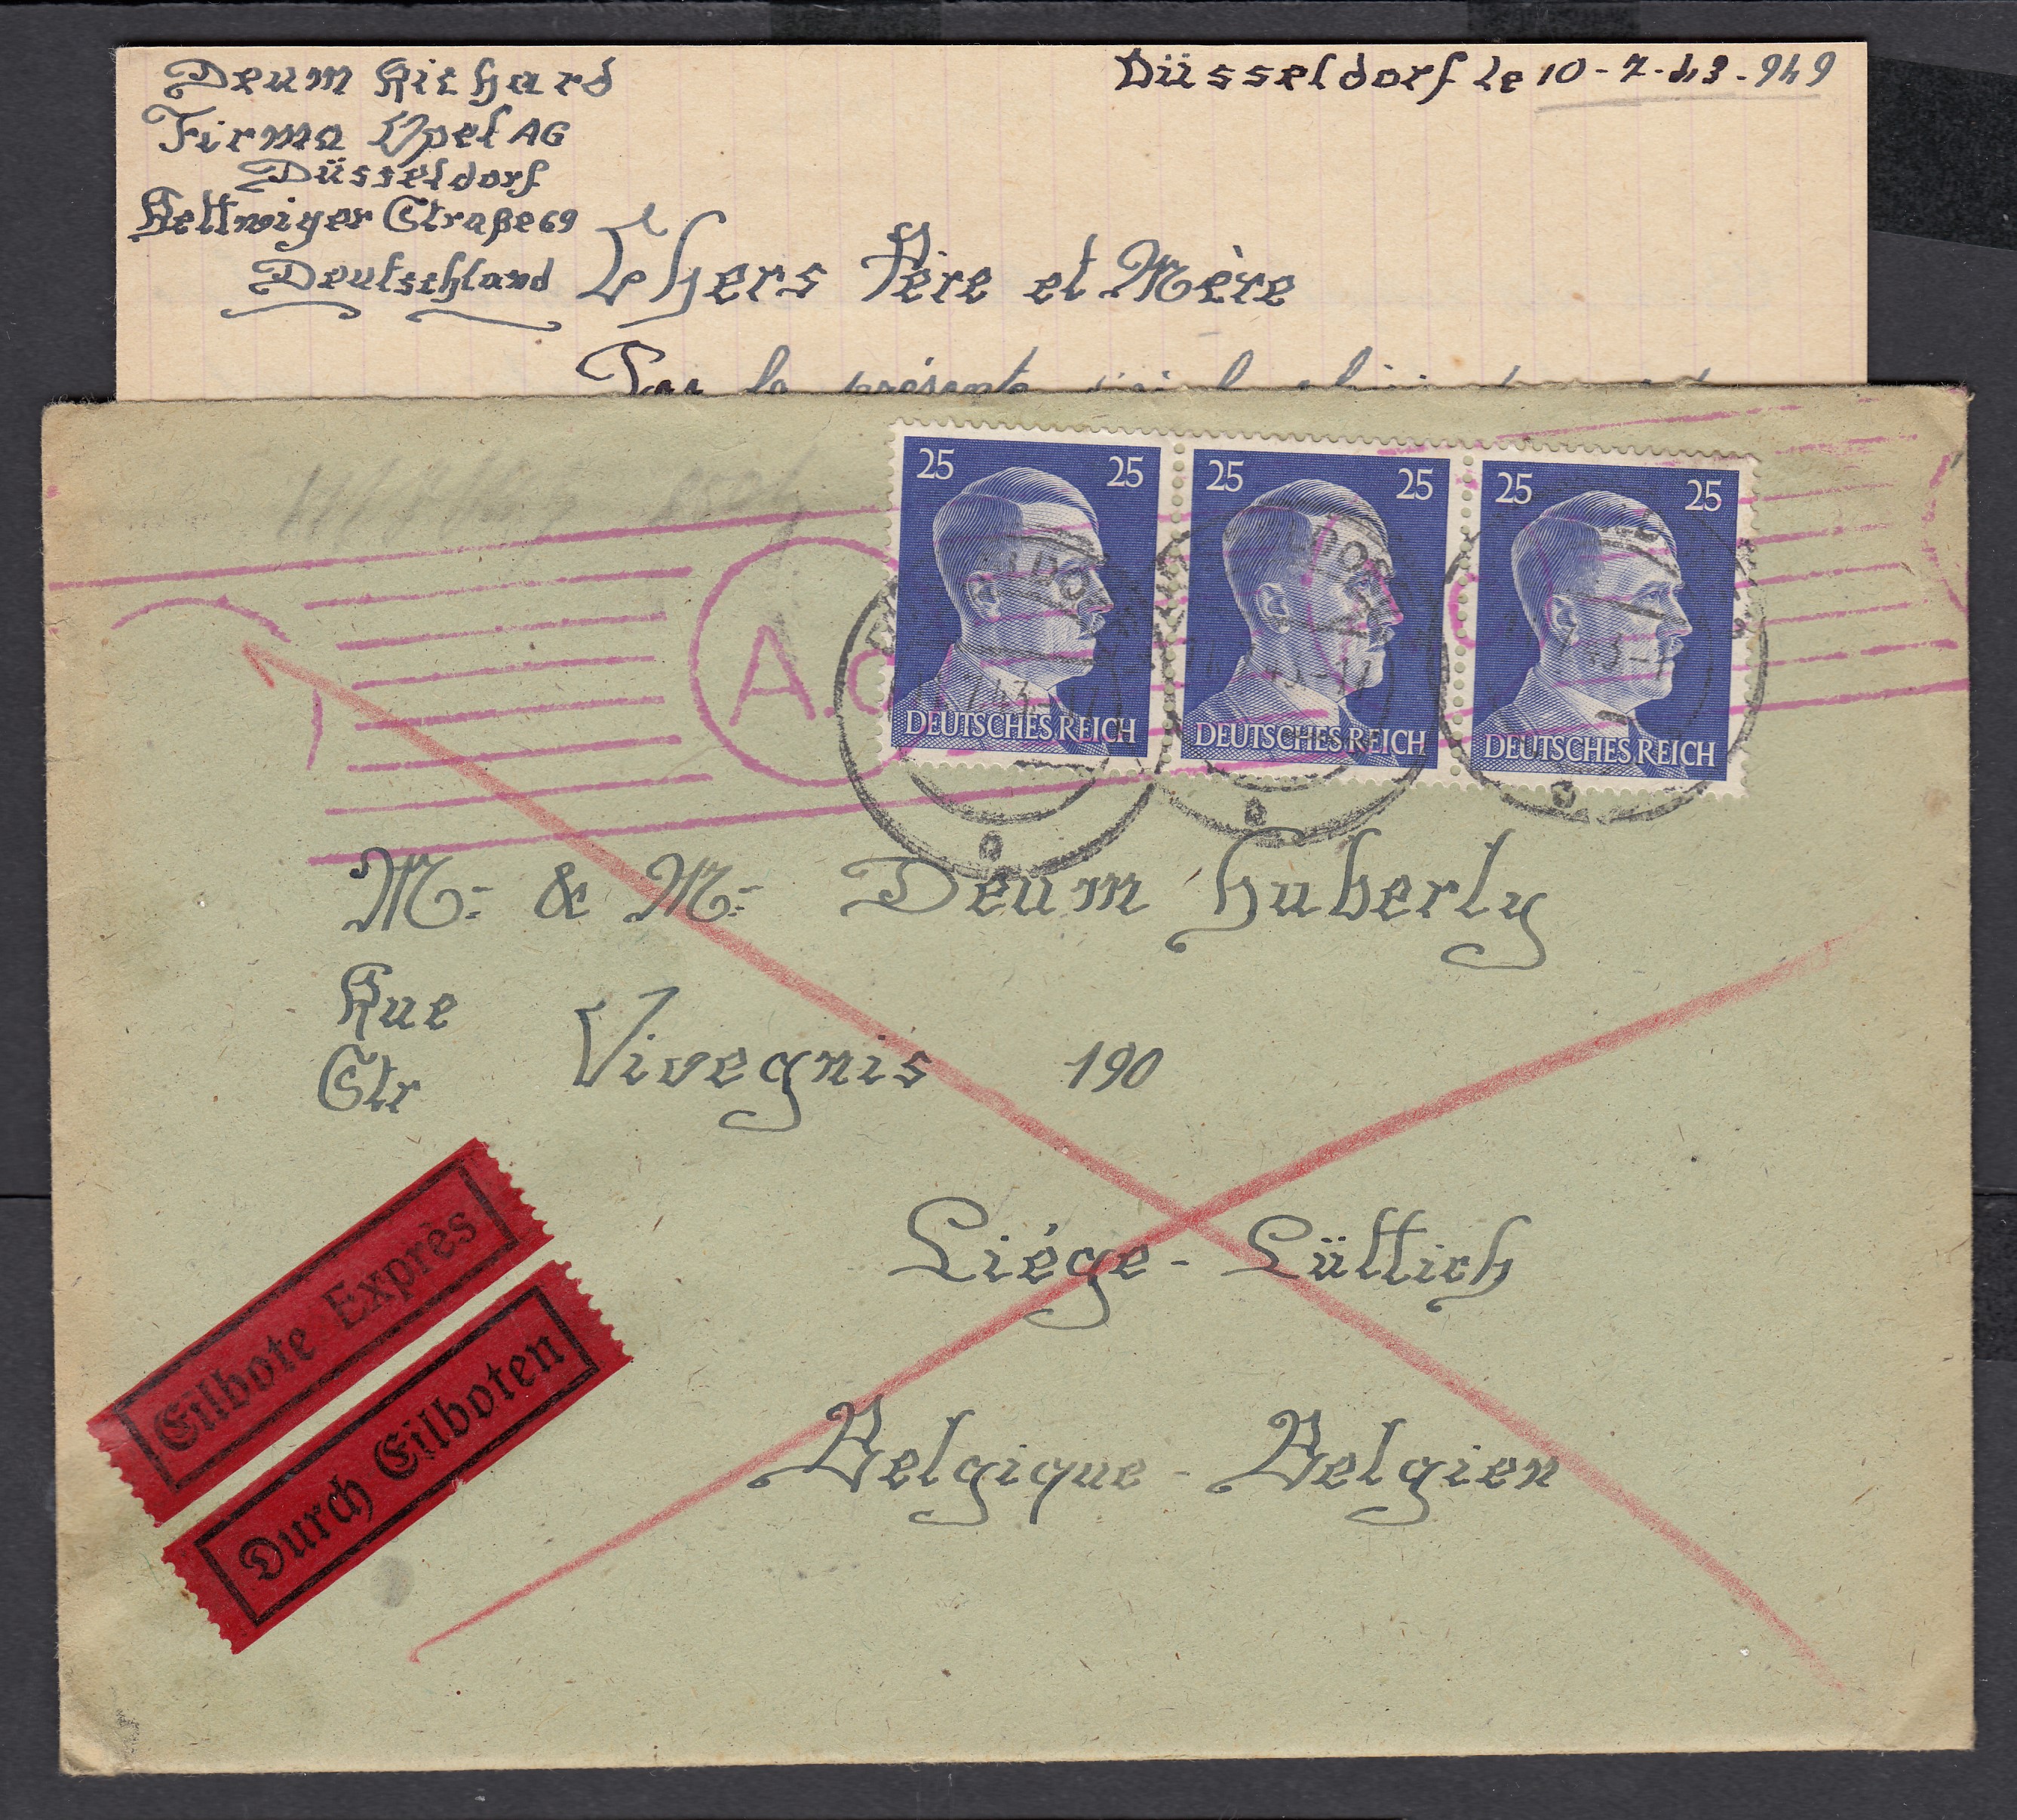 Deum Richard
Düsseldorf le 10-7-43-949
Firma Opel AG
Düsseldorf
Kettwiger Straße 69
Deutschland
Chers Père et Mère
Par la présente
25 25
DEUTSCHES REICH
25 25
DEUTSCHES REICH
25 25
DEUTSCHES REICH
A.c
M: & M: Deum Huberty
Rue
Str
Vivegnis 190
Liége - Lüttich
Belgique - Belgien
Eilbote Exprès
Durch Eilboten